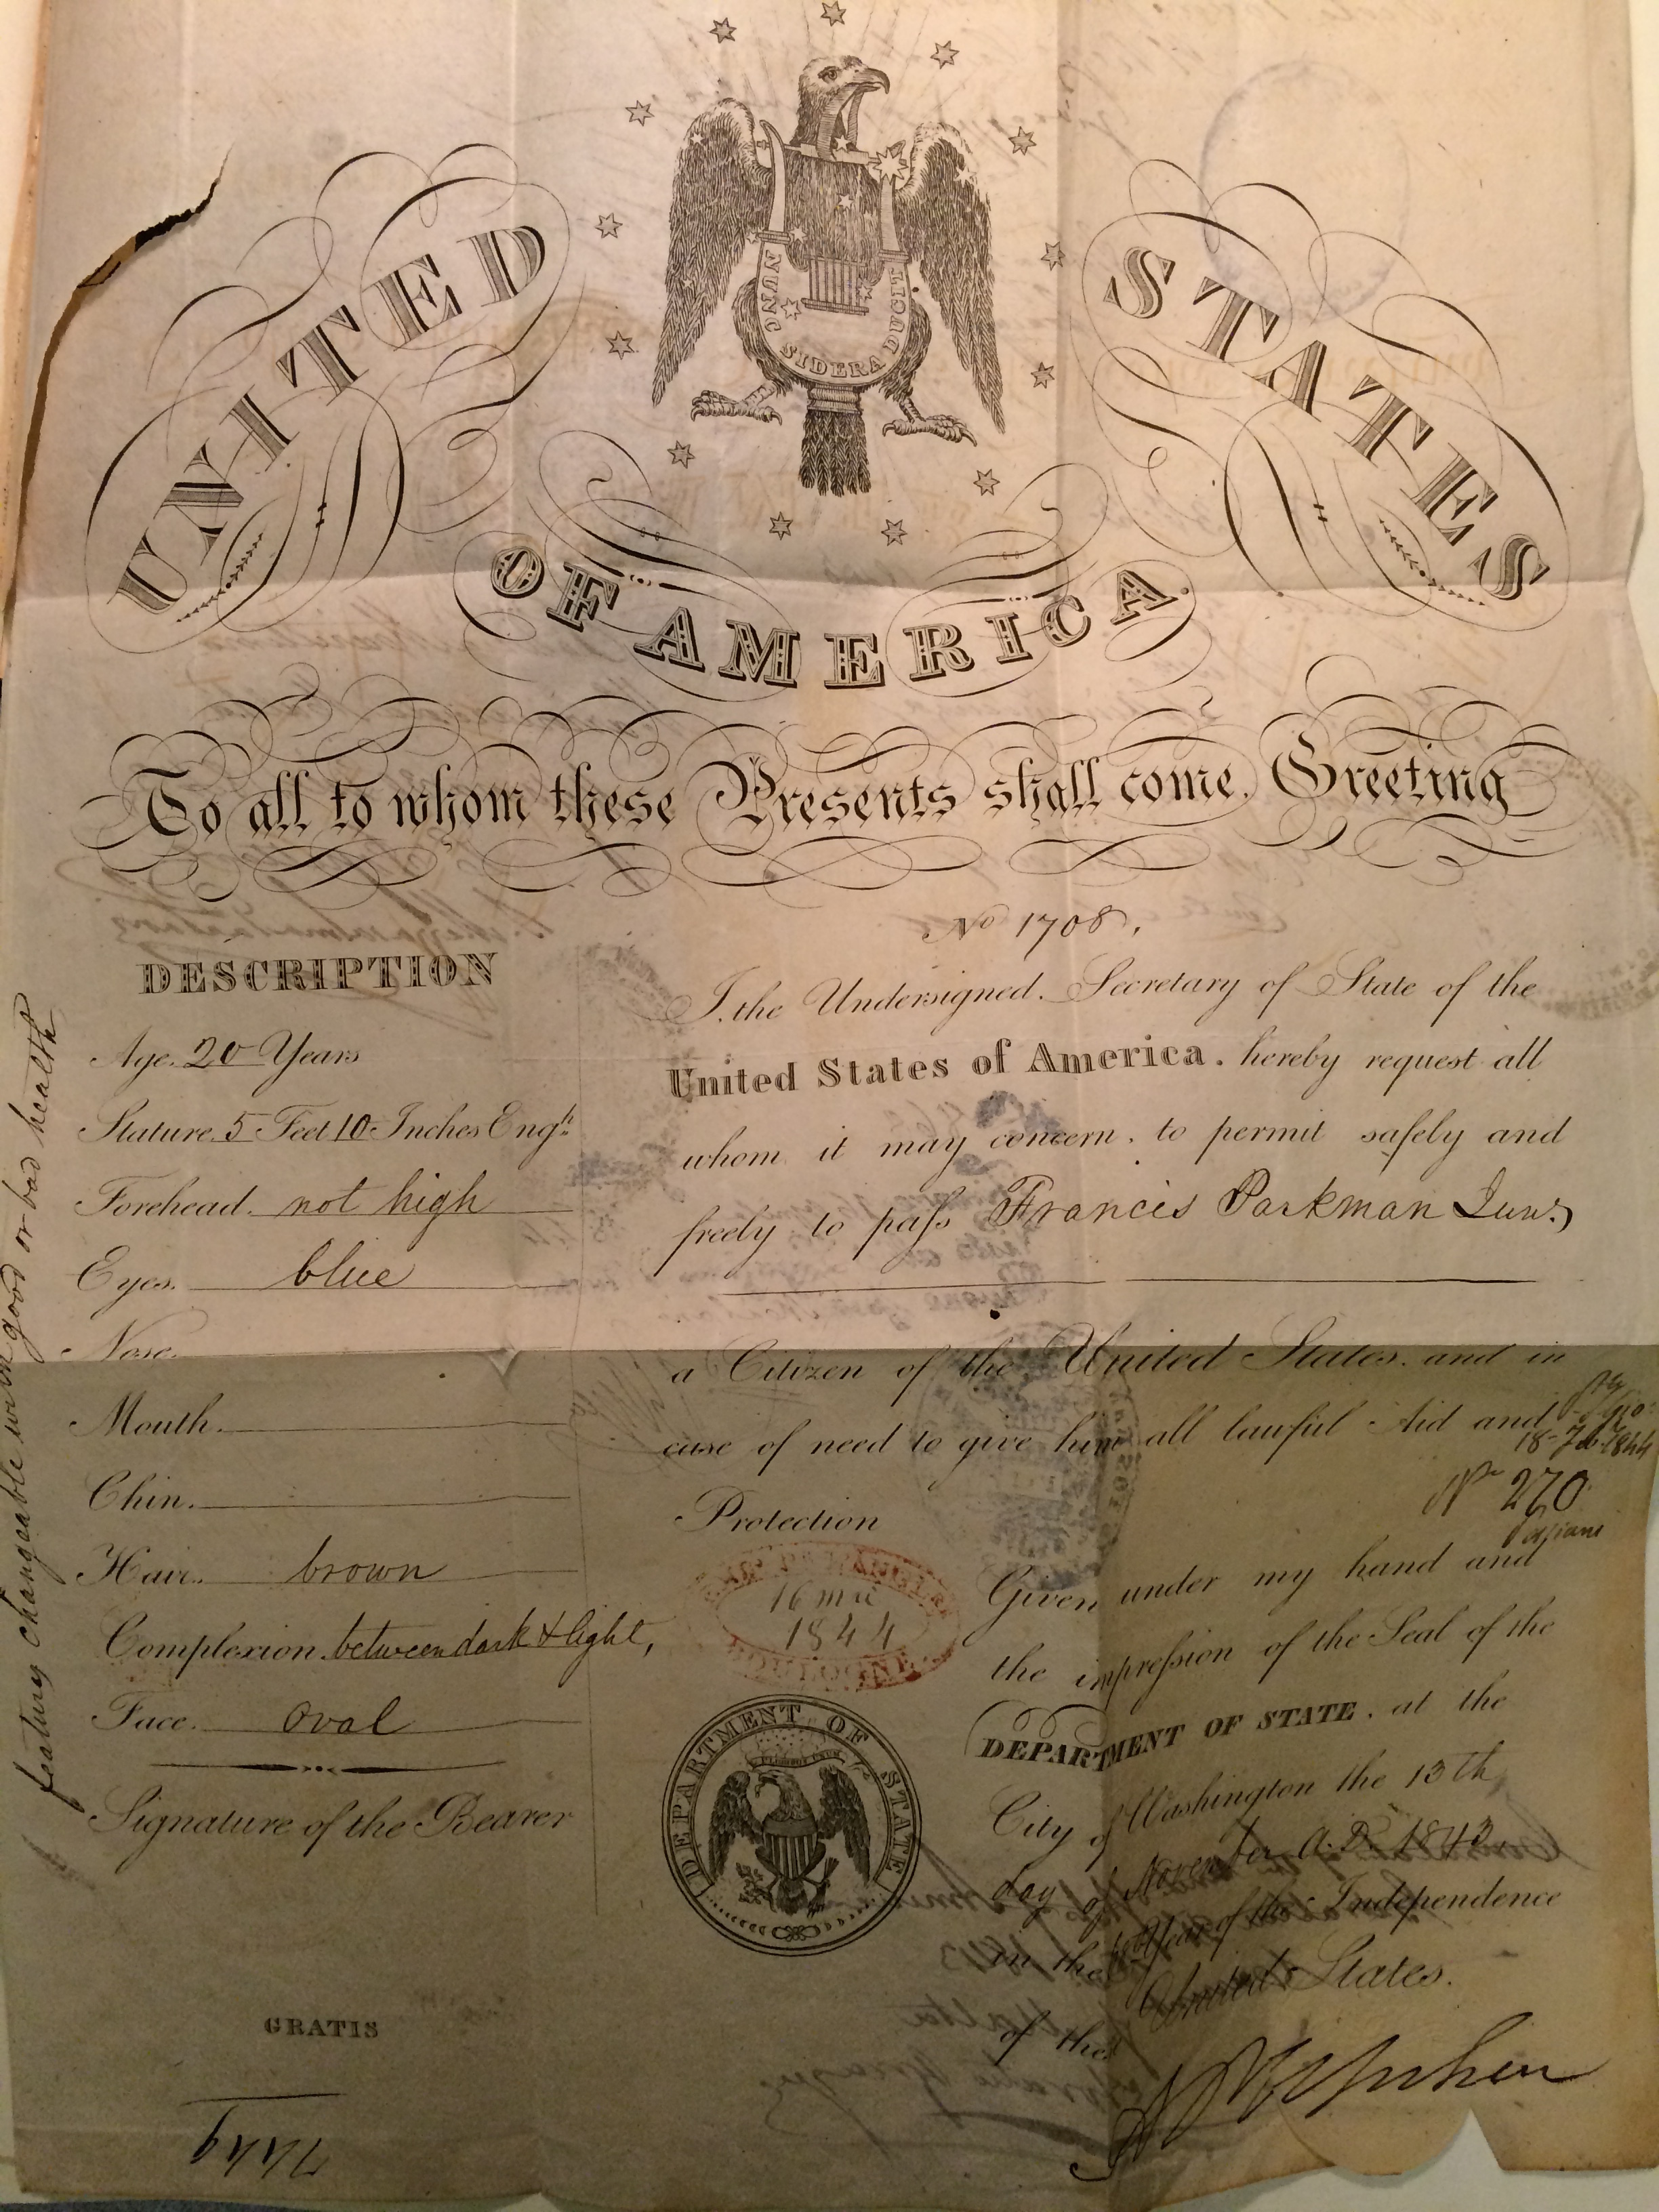 NUNC SIDERA DUCIT
UNITED STATES
OF AMERICA.
To all to whom these Presents shall come. Greeting
No 1708,
DESCRIPTION
Age. 20 Years
Stature. 5 Feet 10 Inches Engh.
Forehead. not high
Eyes. blue
Nose.
Mouth.
Chin.
Hair. brown
Complexion. between dark & light,
Face. oval
Signature of the Bearer
GRATIS
7449
features changeable with good or bad health
I. the Undersigned. Secretary of State of the
United States of America. hereby request all
whom it may concern. to permit safely and
freely to paſs Francis Parkman Junr.
a Citizen of the United States. and in
case of need to give him all lawful Aid and
Protection
18 Feb 1844
No 270
16 mai
1844
BOULOGNE
Given under my hand and
the impreſsion of the Seal of the
DEPARTMENT OF STATE. at the
City of Washington the 13th
day of November A.D. 1843
in the 68 Year of the Independence
of the United States.
DEPARTMENT OF STATE
E PLURIBUS UNUM